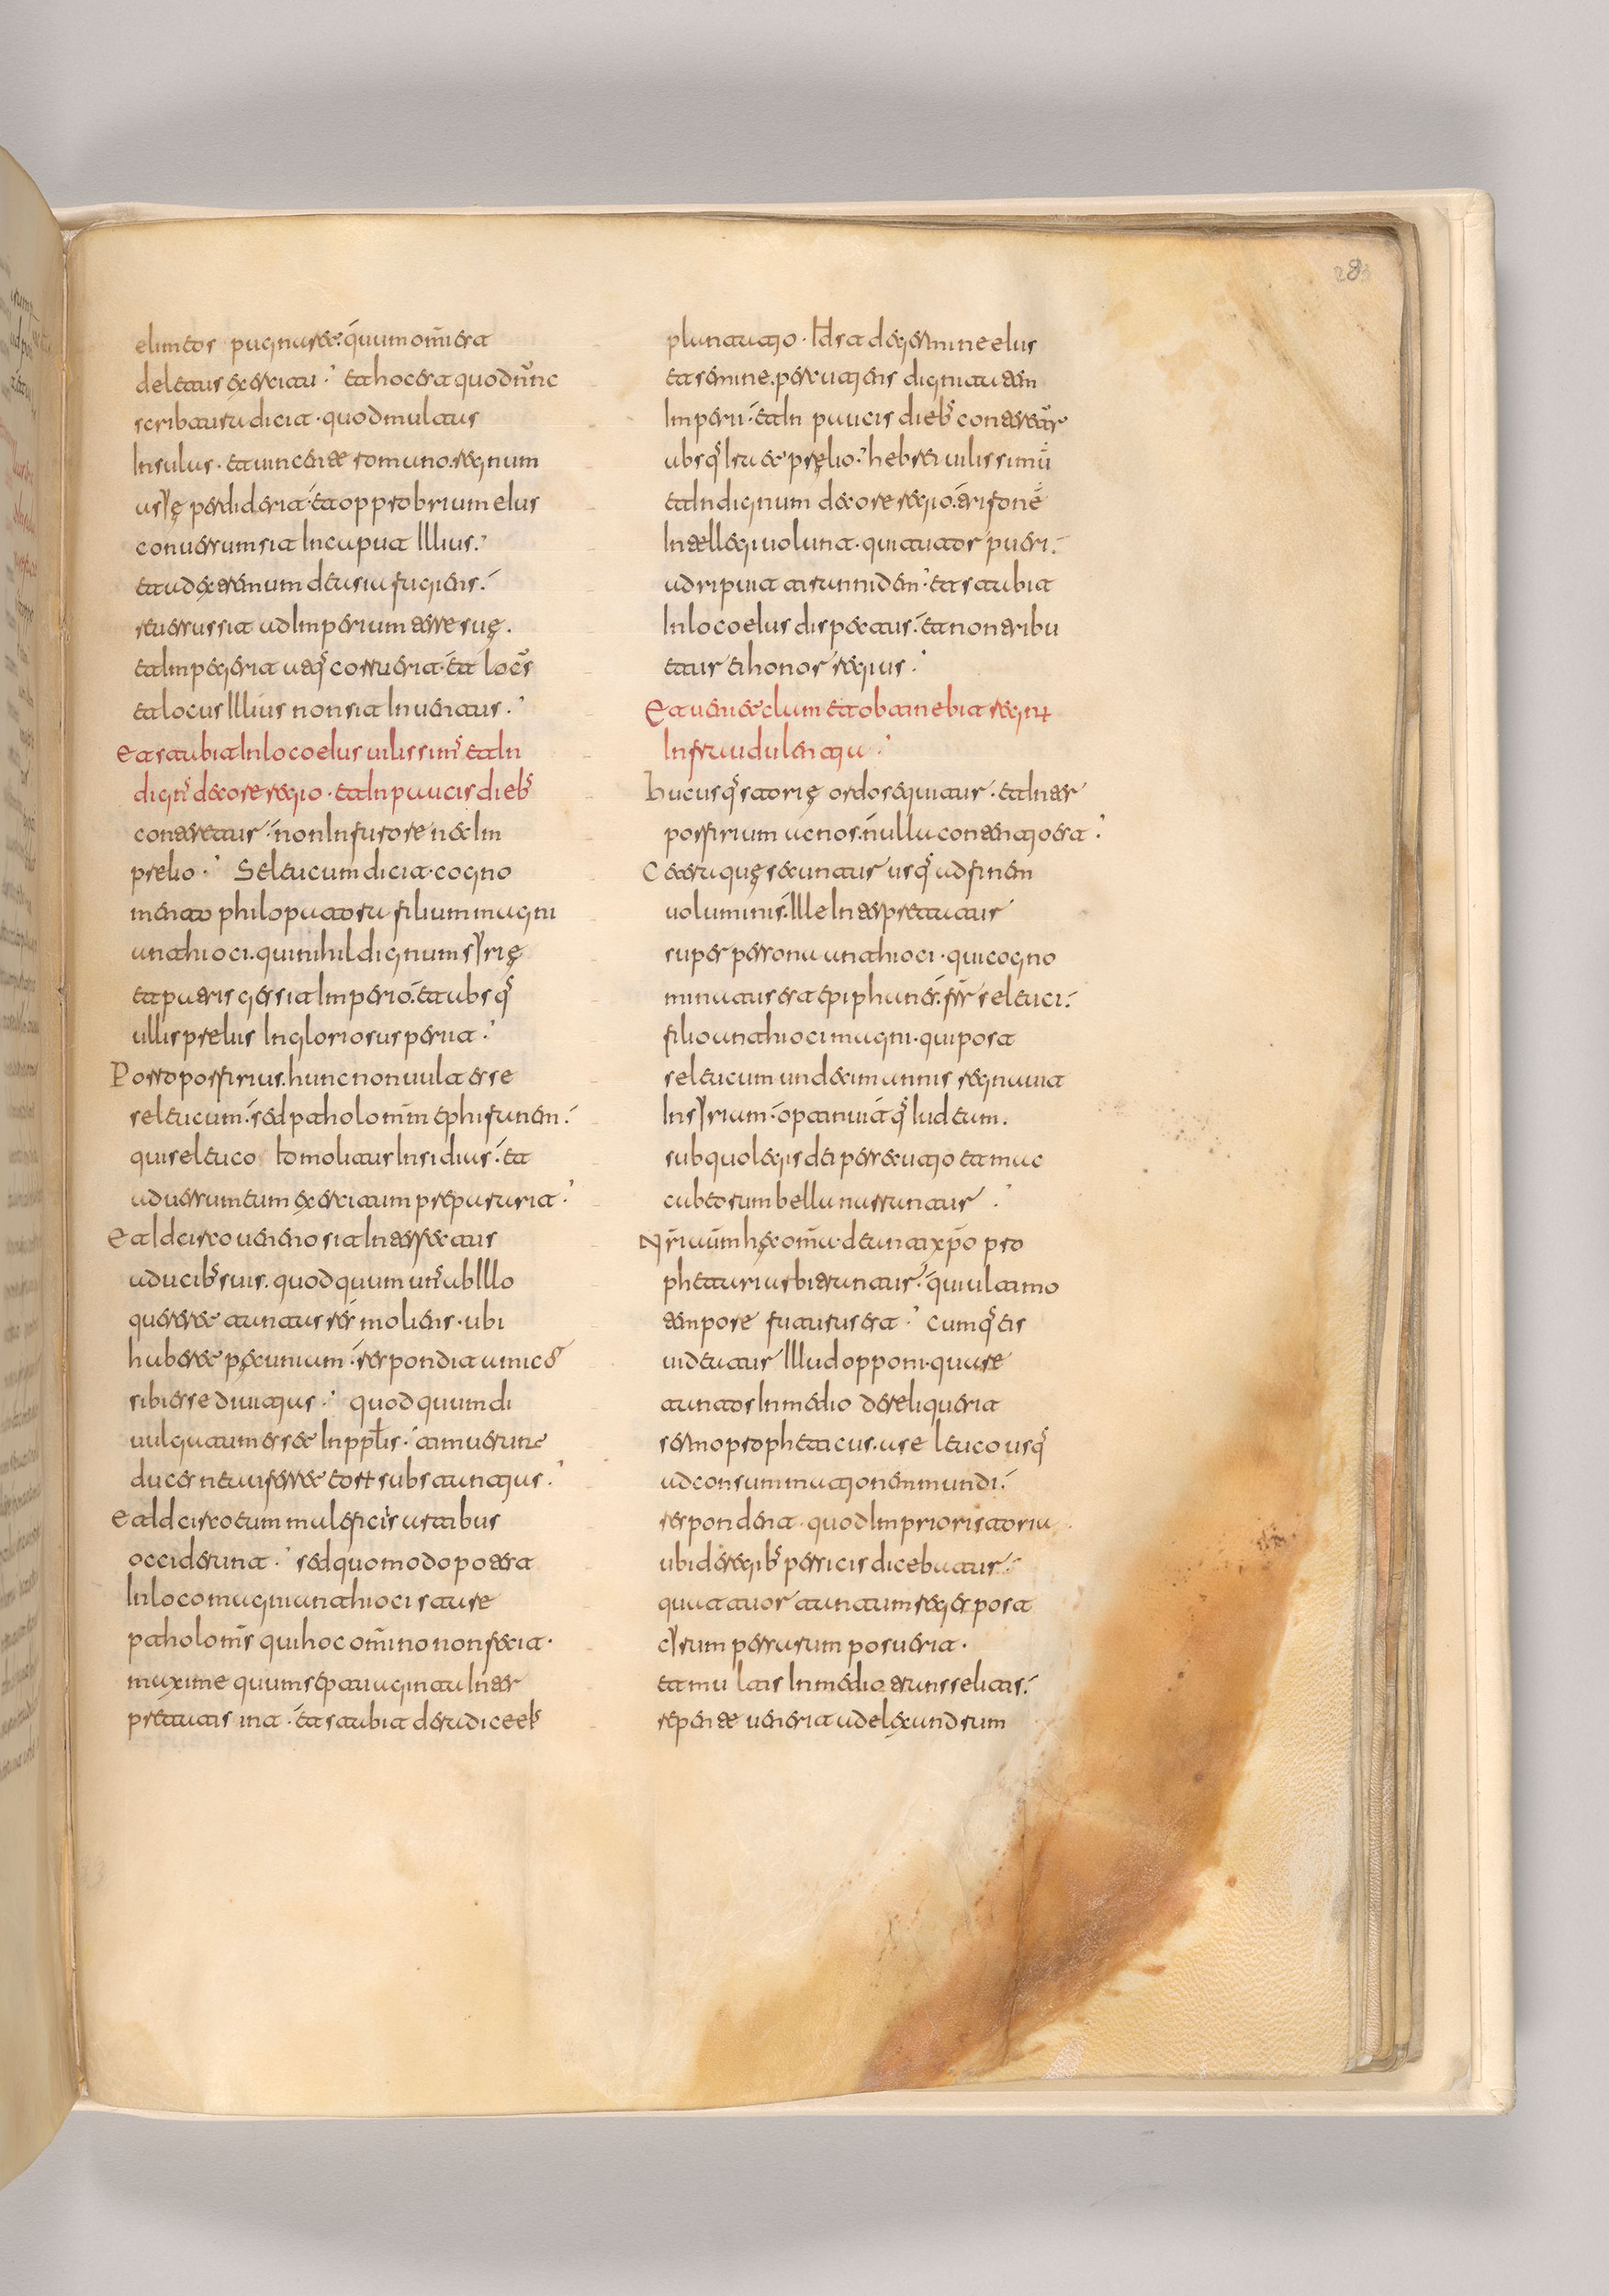 elimeos pugnaret. quum omi est
deletus exercitu. et hoc est quod nunc
scribtura dicit. quod multas
Insulas. et uincente romano. regnum
asyę perdiderit. et opprobrium eius
conuersum sit In caput Illius.
et ad extremum de asia fugiens.
reuersus sit ad Imperium terre suę.
et Impegerit atq corruerit. et locs
et locus Illius non sit Inuentus.
Et stabit In loco eius uilissims et In
digns decore regio. et In paucis dieb
conteretur. non In furore nec Im
prelio. Seleucum dicit. cogno
mento philopatora filium magni
antiochi. qui nihil dignum syrię
et patris gessit Imperio. et absq
ullis preliis Ingloriosus periit.
Porro porfirius. hunc non uult esse
seleucum. sed ptholomm ephifanem.
qui seleuco tomolitus Insidias. et
aduersum eum exercitum prepararit.
Et Idcirco ueneno sit Interfectus
a ducibs suis. quod quum uns ab Illo
quereret tantas res moliens. ubi
haberet pecuniam. respondit amicos
sibi esse diuitias. quod quum di
uulgatum esset In pplis. timuerunt
duces ne auferret eorum substantias.
Et Idcirco eum maleficis artibus
occiderunt. sed quomodo potest
In loco magni antiochi stare
ptholoms qui hoc omino non fecit.
maxime quum septuaginta Inter
pretati sint. et stabit de radice eius
plantatio. Id est de germine eius
et semine. percutiens dignitatem
Imperii. et In paucis dieb conteretur
absq Ira et pręlio. hebrei uilissimum
et Indignum decore regio. trifonem
Intellegi uolunt. qui tutor pueri.
adripuit tirannidem. et stabit
In loco eius dispectus. et non tribu
etur ei honor regius.
Et ueniet clam et obtinebit regnum
In fraudulentia.
Hucusq storię ordo sequitur. et Inter
porfirium ac nos. nulla contentio est.
Cetera quę secuntur usq ad finem
uoluminis. Ille Interpretatur
super persona antiochi. qui cogno
minatus est epiphanes. fr seleuci.
filio antiochi magni. qui post
seleucum undecim annis regnauit
In syriam. optinuitq Iudeam.
sub quo legis dei persecutio et mac
cabeorum bella narrantur.
Nsri autem hęc omia. de antixpo pro
phetari arbitrantur. qui ultimo
tempore futurus est. cumq eis
uideatur Illud opponi. quare
tantos In medio dereliquerit
sermo propheticus. a seleuco usq
ad consummationem mundi.
respondent. quod Im priori storia
ubi de regib persicis dicebatur.
quattuor tantum reges post
cyrum persarum posuerit.
et multis In medio transsilitis.
repente uenerit ad elexandrum